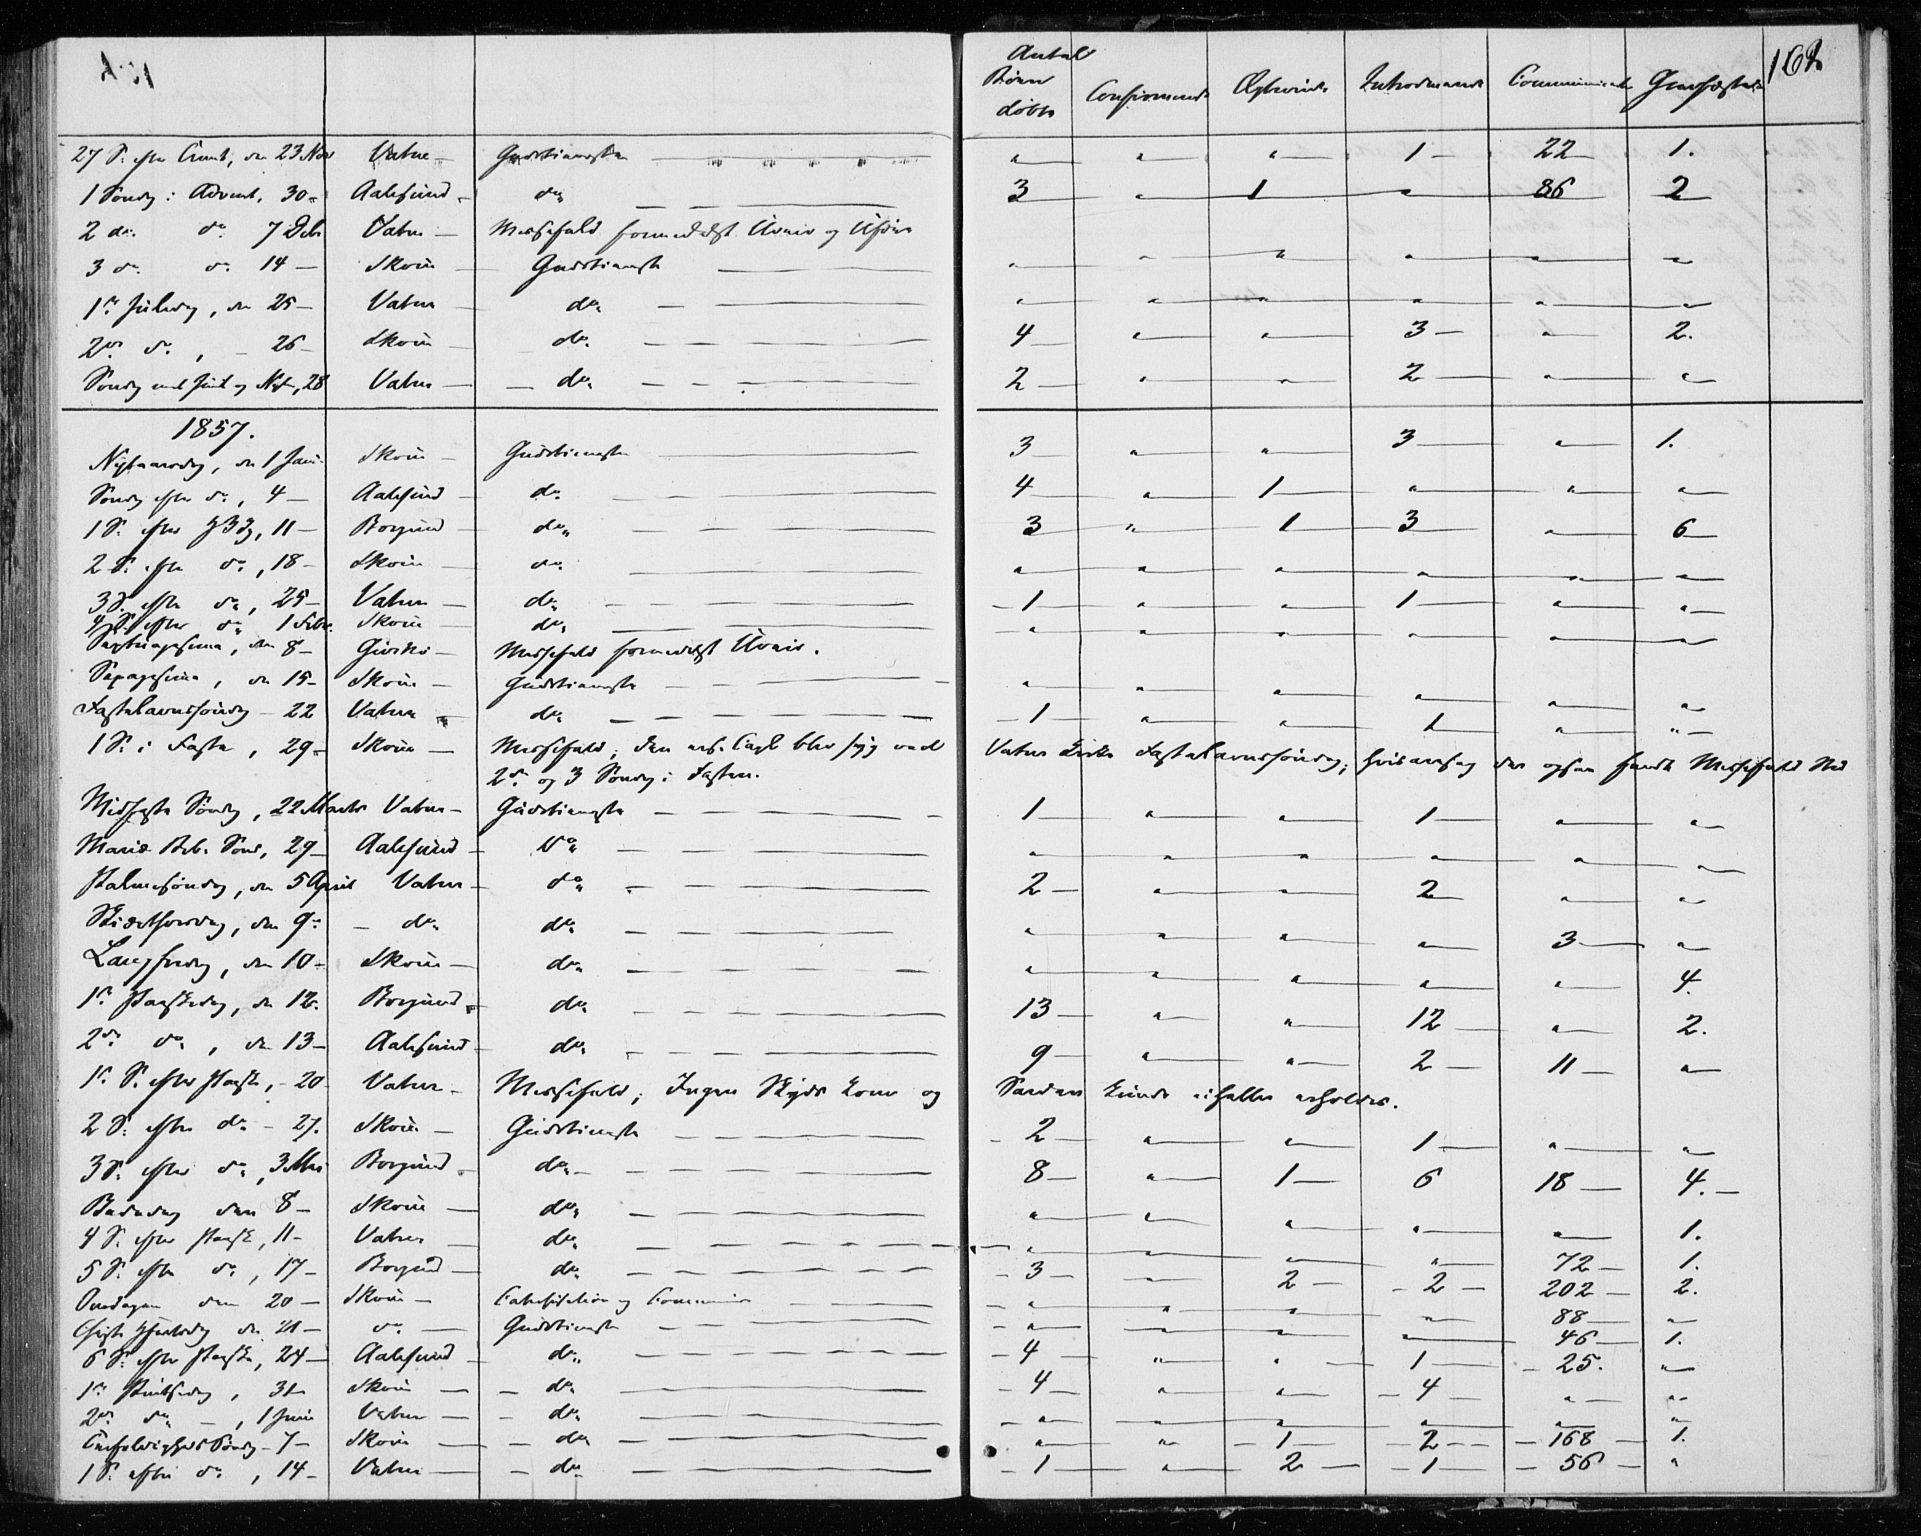 Antal Børn døbte Confirmerede Ægteviede Introducerede Communicanter Gravfæstede 162
27 S. efter Trinit, den 23 Nov Vatne Gudstieneste " " " 1 22 1.
1 Søndag i Advent, 30 Aalesund do 3 " 1 " 86 2
2 do do 7 Decb Vatne Messefald formedelst Uveir og Uføre
3 do do 14 Skoue Gudstieneste " " " " " "
1ste Juledag, den 25 Vatne do " " " " " "
2den do, 26 Skoue do 4 " " 3 " 2.
Søndag mel Juul og Nytr, 28 Vatne do 2 " " 2 " "
1857.
Nytaarsdag, den 1 Janr Skoue Gudstieneste 3 " " 3 " 1.
Søndag efter do, 4 Aalesund do 4 " 1 " " "
1 S. efter H3K, 11 Borgund do 3 " 1 3 " 6
2 S. efter do, 18 Skoue do " " " " " "
3 S. efter do, 25 Vatne do 1 " " 1 " "
4 S. efter do 1 Febr. Skoue do " " " " " "
Septuagesima, den 8 Giøske Messefald formedelst Uveir.
Sexagesima, den 15 Skoue Gudstieneste " " " " " "
Fastelavnssøndag 22 Vatne do 1 " " 1 " "
1 S. i Faste, 29 Skoue Messefald, den res. Capl blev syg ved Vatne Kirke Fastelavnssøndag, hvisaarsag der ogsaa fandt Messefald Sted
2den og 3 Søndag i Fasten.
Midfaste Søndag, 22 Marts Vatne Gudstieneste 1 " " 1 " "
Mariæ Beb. Sønd, 29 Aalesund Do " " " " " "
Palmesøndag, den 5 April Vatne do 2 " " 2 " "
Skiærthorsdag, den 9 do do " " " " 3 "
Langfredag, den 10 Skoue do " " " " " 4.
1ste Paaskedag, den 12. Borgund do 13 " " 12 " 2.
2den do, den 13 Aalesund do 9 " " 2 11 "
1ste S. efter Paaske, 20 Vatne Messefald, Ingen Skyds kom og Saadan kunde eiheller erholdes.
2 S. efter do 27. Skoue Gudstieneste 2 " " 1 " "
3 S. efter do, 3 Mai Borgund do 8 " 1 6 18 4.
Bededag den 8 Skoue do " " " " " 1.
4 S. efter Paaske, 11 Vatne do " " " " 72 1.
5 S. efter do, 17 Borgund do 3 " 2 2 202 2.
Onsdagen den 20 Skoue Catechisation og Communion " " " " 88 "
Christi Himmelfd den 21 do Gudstieneste " " " " 46 1.
6 S. efter Paaske, 24 Aalesund do 4 " " 1 25. "
1ste Pintsedag, 31 Skoue do 4 " " 4 " "
2den do, 1 Juni Vatne do " " " " " "
Trefoldigheds Søndag 7 Skoue do " " 1 2 168 1.
1 S. efter do, 14 Vatne do 1 " 2 1 56 "